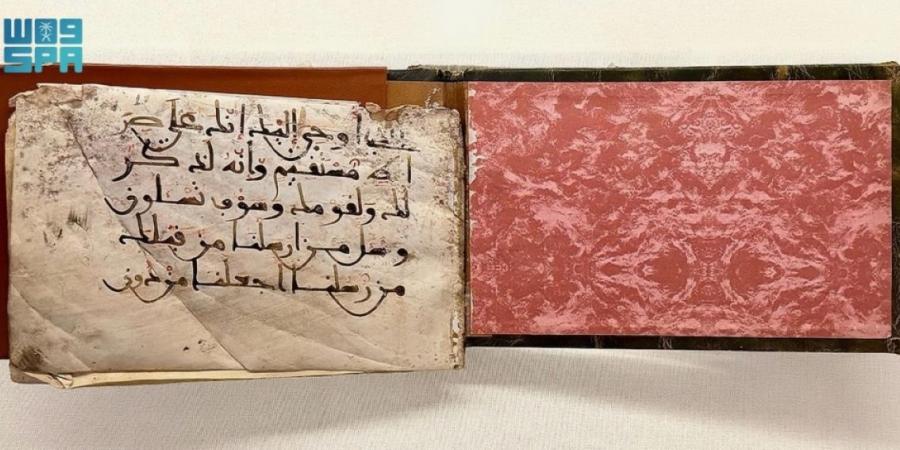 واس
SPA
أوحي إليك إنك على صر
اط مستقيم وأنه لذكر
لك ولقومك وسوف تسئلون
وسل من ارسلنا من قبلك
من رسلنا اجعلنا من دون